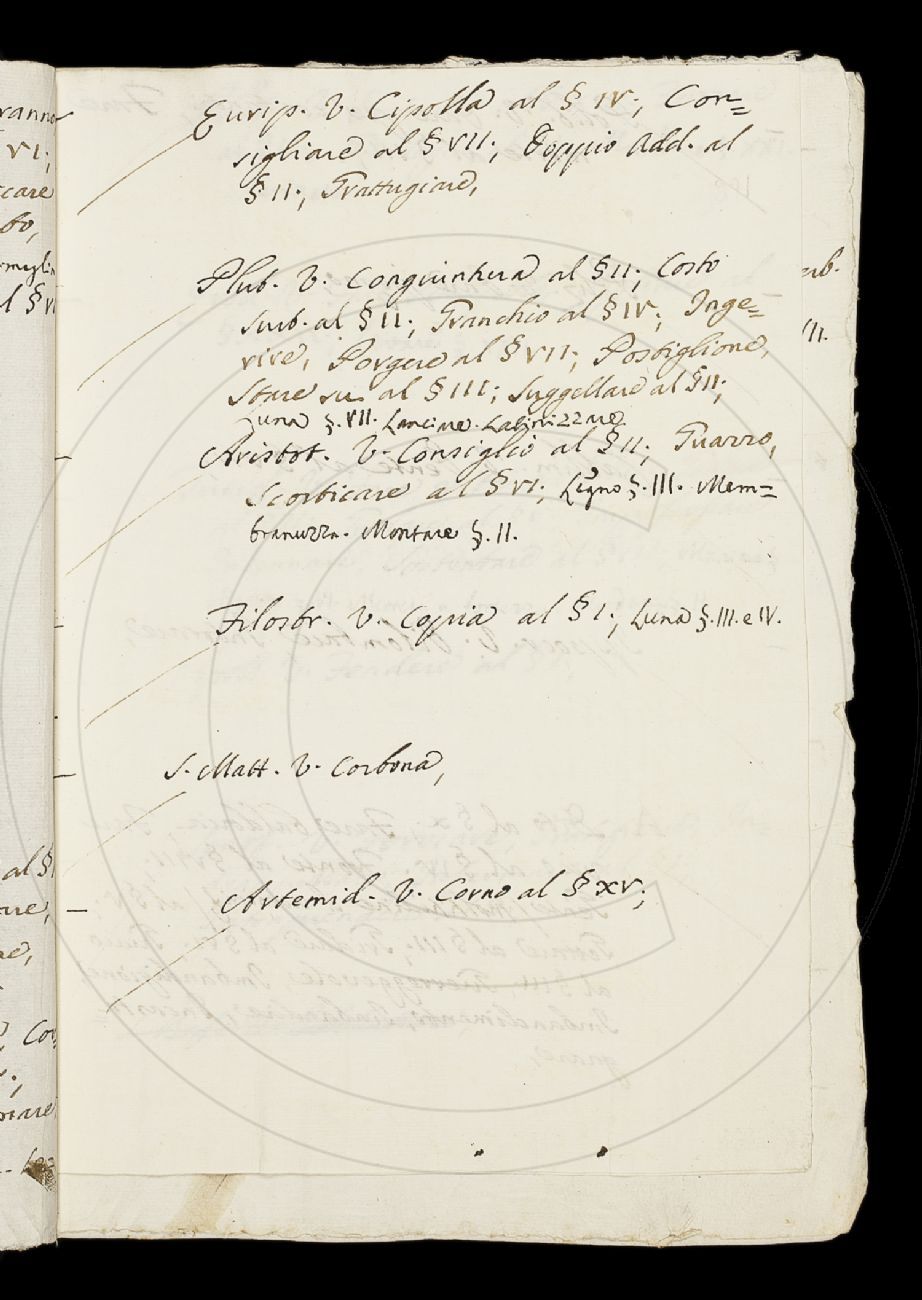 Eurip. V. Cipolla al § IV; Con=
sigliare al § VII; Doppio Add. al
§ II; Grattugiare,
Plut. V. Congiuntura al § II; Costo
Sust. al § II; Granchio al § IV; Inge=
rire, Porgere al § VII; Postiglione,
Stare su al § III; Suggellare al § II;
Luna §. VII. Lanciare. Latinizzare
Aristot. V. Consiglio al § II; Guazzo,
Scorticare al § VI; Legno §. III. Mem=
branuzza. Montare §. II.
Filostr. V. Copia al § I; Luna §. III. e IV.
S. Matt. V. Corbona,
Artemid. V. Corno al § XV;